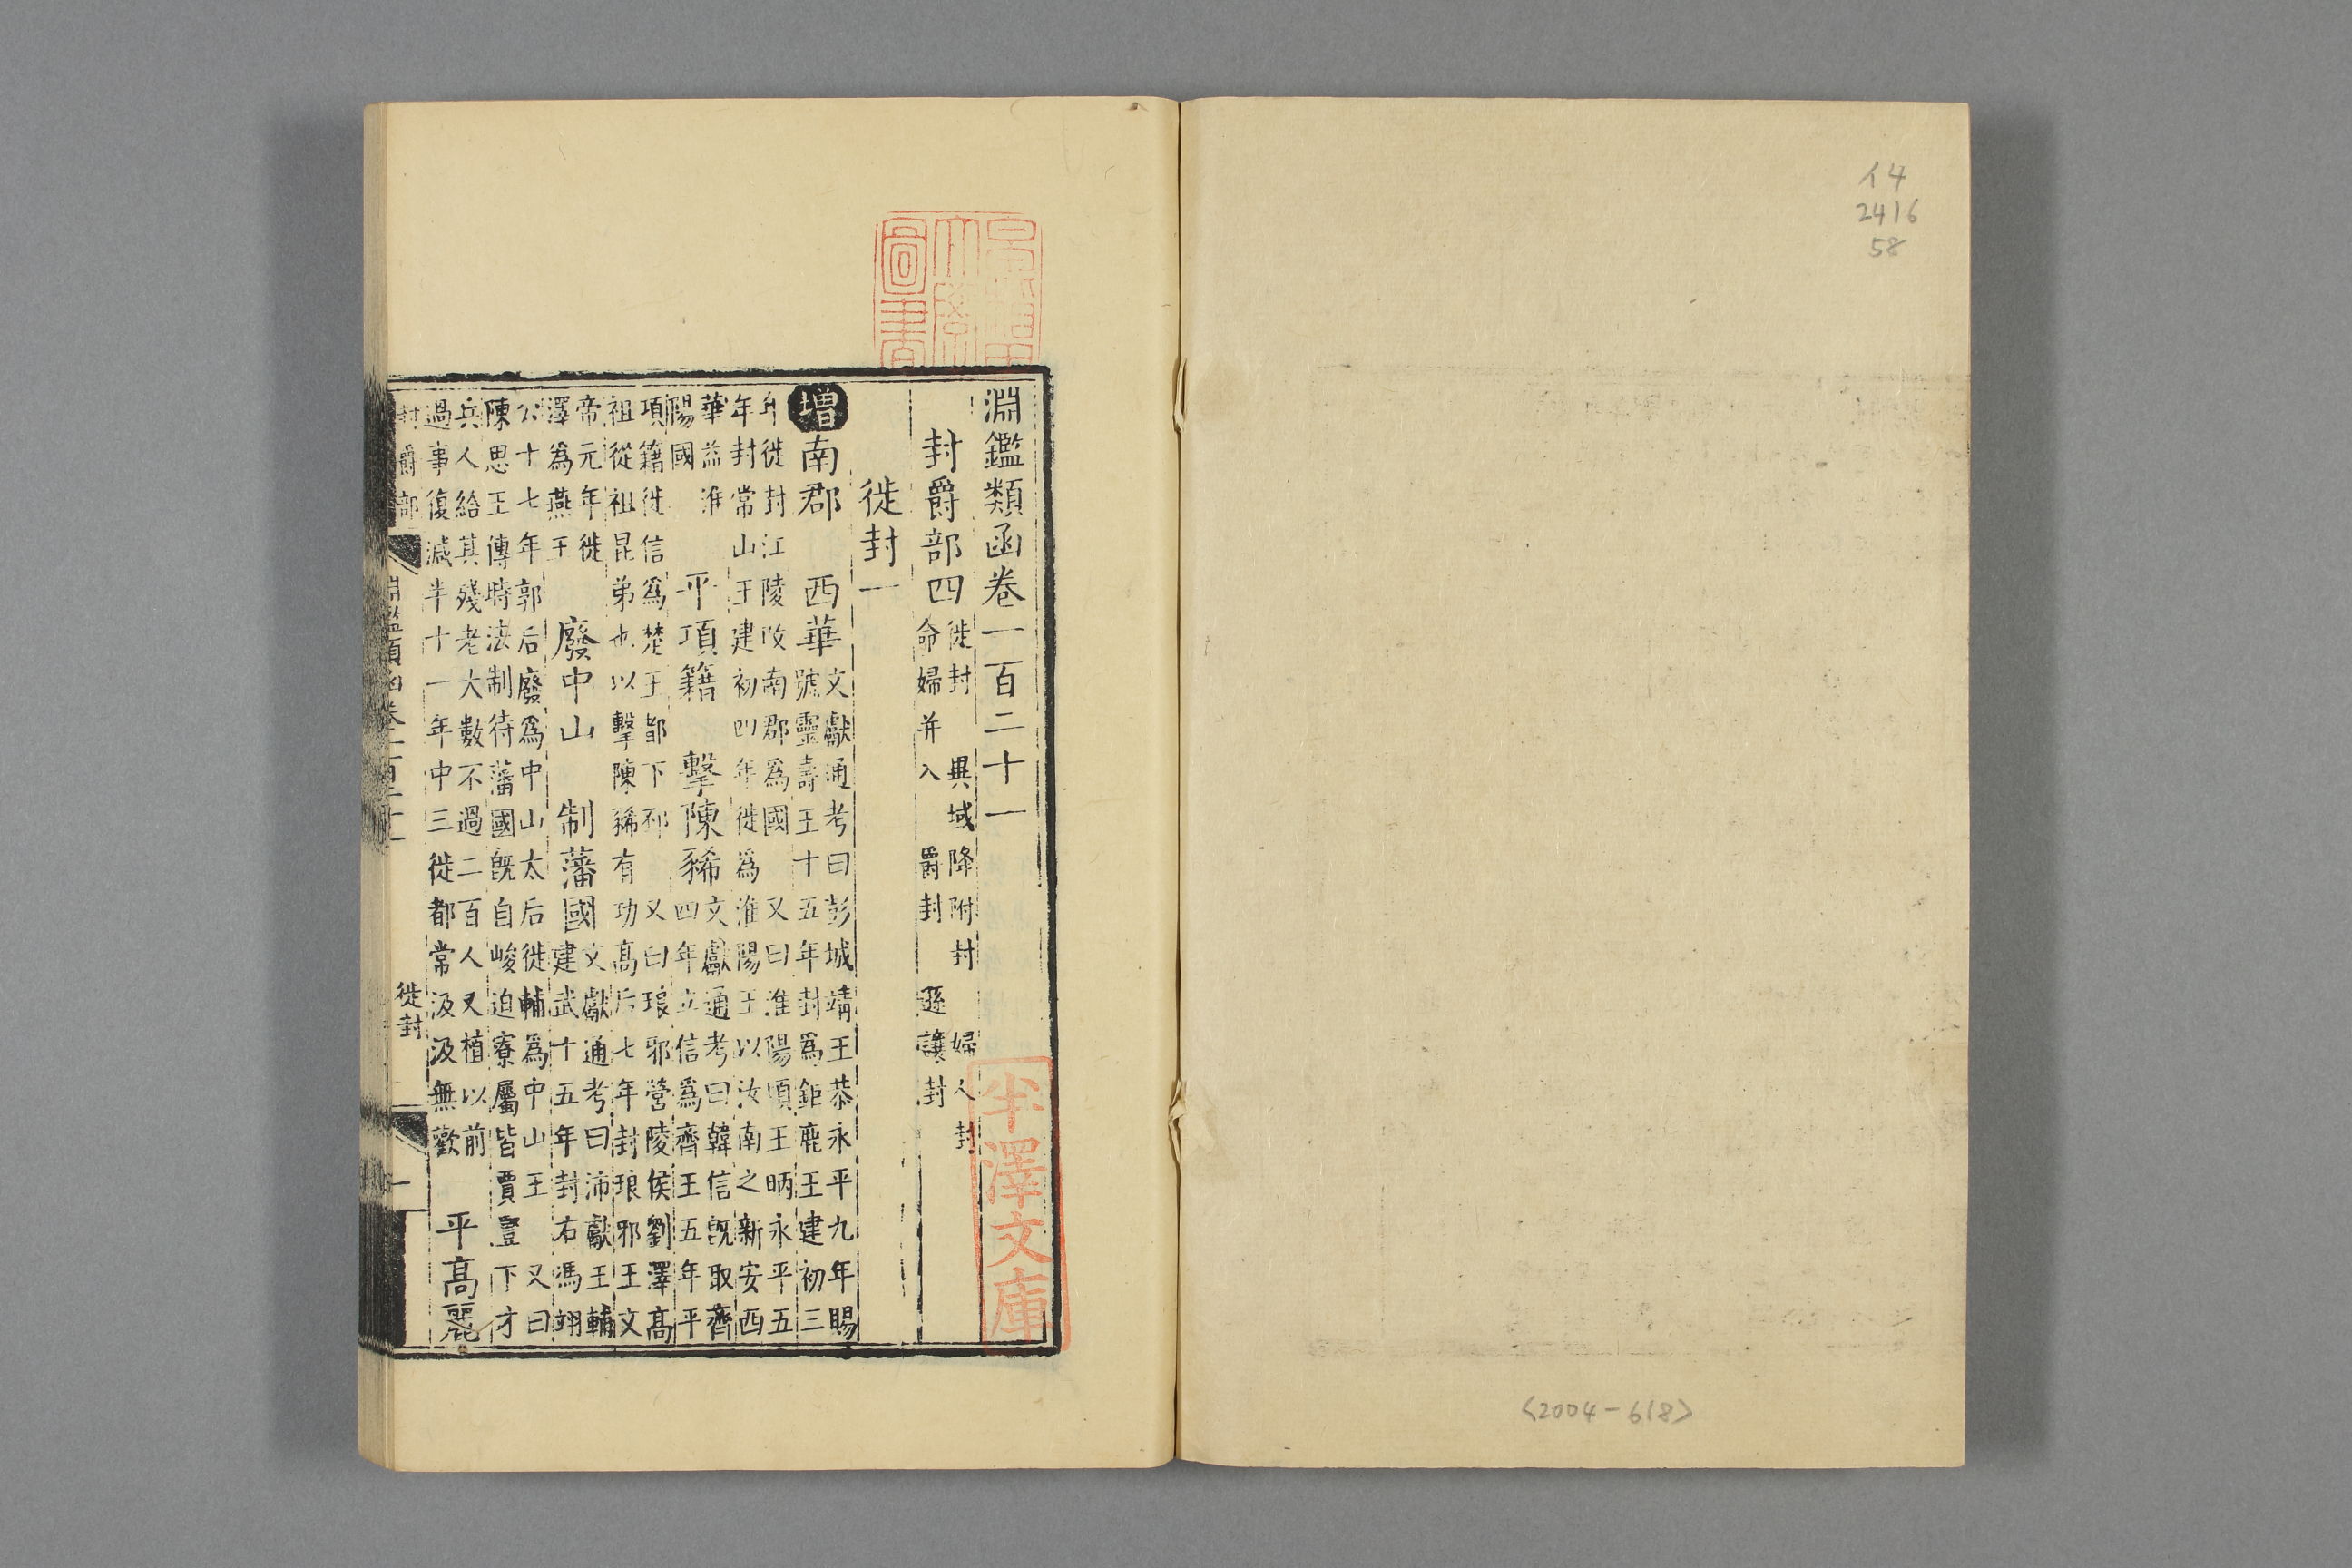 イ4
2416
58
<2004-618>
淵鑑類函卷一百二十一
封爵部四
徙封 異域降附封 婦人封
命婦并入 爵封 遜讓封
徙封一
增南郡 西華
文獻通考曰彭城靖王恭永平九年賜
號靈壽王十五年封爲鉅鹿王建初三
年徙封江陵改南郡爲國 又曰淮陽頃王昞永平五
年封常山王建初四年徙爲淮陽王以汝南之新安西
華益淮
陽國
平項籍 擊陳豨
文獻通考曰韓信旣取齊
四年立信爲齊王五年平
項籍徙信爲楚王都下邳 又曰琅邪營陵侯劉澤高
祖從祖昆弟也以擊陳豨有功高后七年封琅邪王文
帝元年徙
澤爲燕王
廢中山 制藩國
文獻通考曰沛獻王輔
建武十五年封右馮翊
公十七年郭后廢爲中山太后徙輔爲中山王 又曰
陳思王傳時法制待藩國旣自峻迫寮屬皆賈豎下才
兵人給其殘老大數不過二百人又植以前
過事復減半十一年中三徙都常汲汲無歡
平高麗
封爵部 淵鑑類函卷一百二十一 徙封 一
半澤文庫